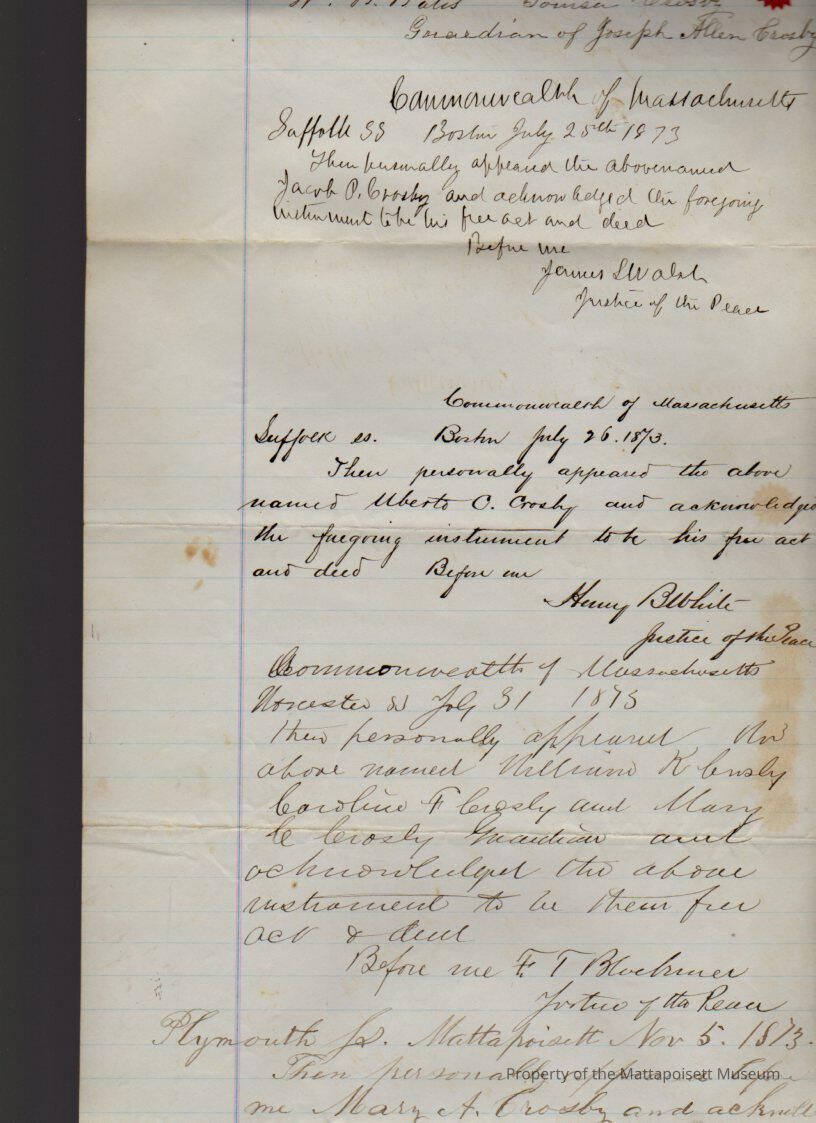 Guardian of Joseph Allen Crosby
Commonwealth of Massachusetts
Suffolk SS Boston July 25th 1873
Then personally appeared the abovenamed
Jacob P. Crosby and acknowledged the foregoing
instrument to be his free act and deed
Before me
James S Walsh
Justice of the Peace
Commonwealth of Massachusetts
Suffolk ss. Boston July 26. 1873.
Then personally appeared the above
named Uberto C. Crosby and acknowledged
the foregoing instrument to be his free act
and deed Before me
Henry B White
Justice of the Peace
Commonwealth of Massachusetts
Worcester SS July 31 1873
then personally appeared the
above named William K Crosby
Caroline F Crosby and Mary
E Crosby Guardian and
acknowledged the above
instrument to be their free
act & deed
Before me F. T Blackmer
Justice of the Peace
Plymouth Ss. Mattapoisett Nov 5. 1873.
Then personally
me Mary A. Crosby and
Property of the Mattapoisett Museum